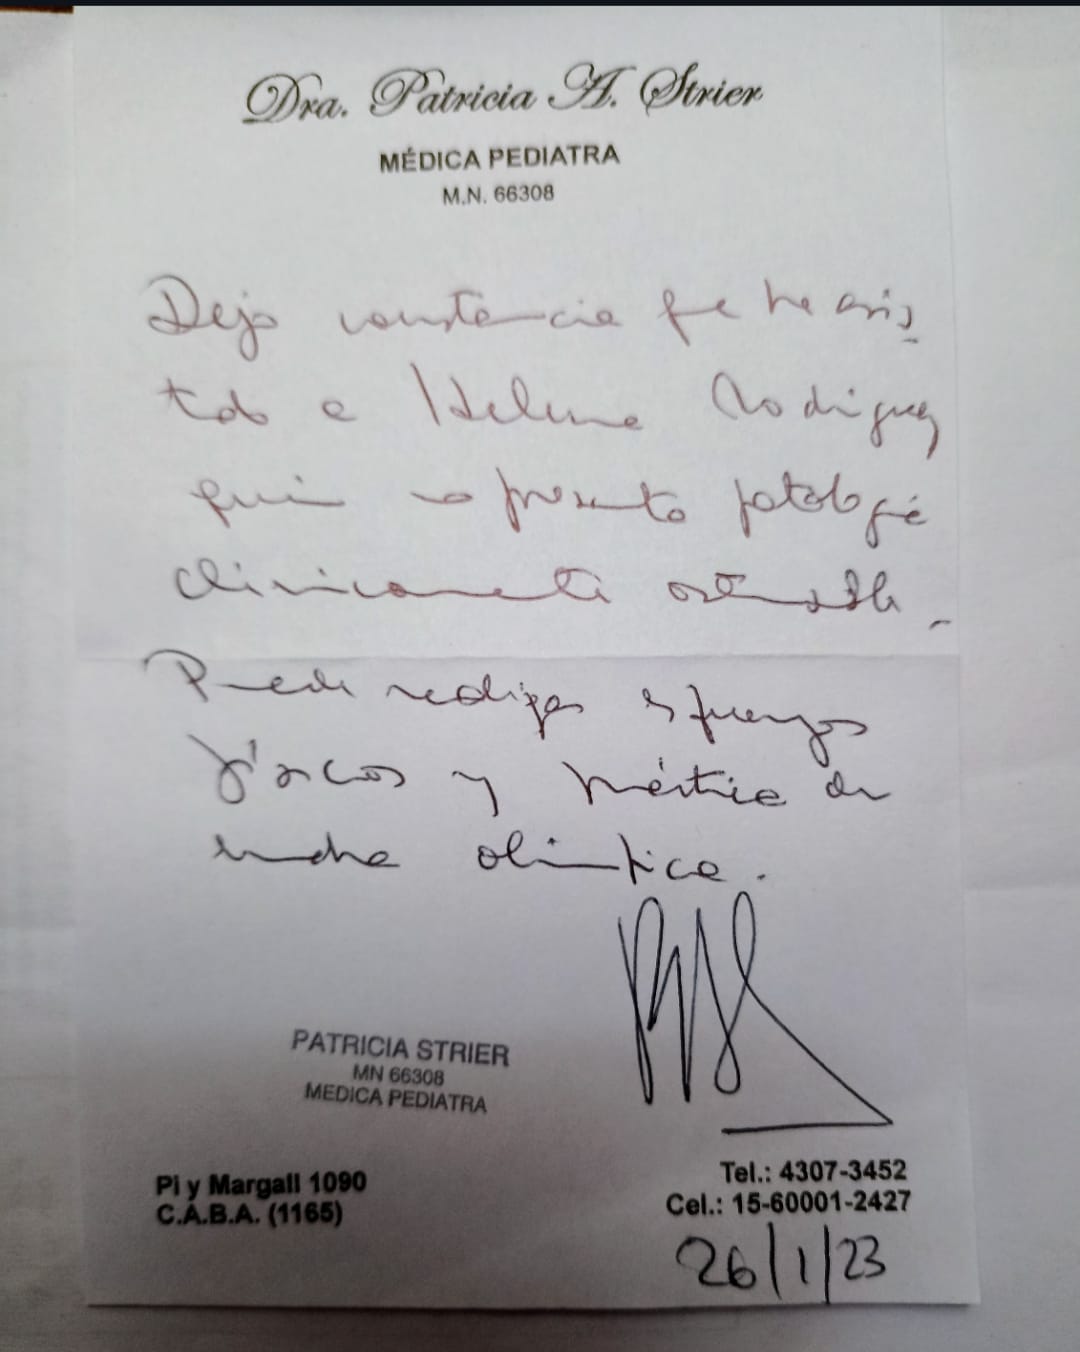 Dra. Patricia A. Strier
MÉDICA PEDIATRA
M.N. 66308
Dejo constancia que he asis
tido a Helena Rodriguez
quien no presenta patología
clínicamente ostensible.
Puede realizar esfuerzos
físicos y práctica de
lucha olímpica.
PATRICIA STRIER
MN 66308
MEDICA PEDIATRA
Pi y Margall 1090
C.A.B.A. (1165)
Tel.: 4307-3452
Cel.: 15-60001-2427
26/1/23